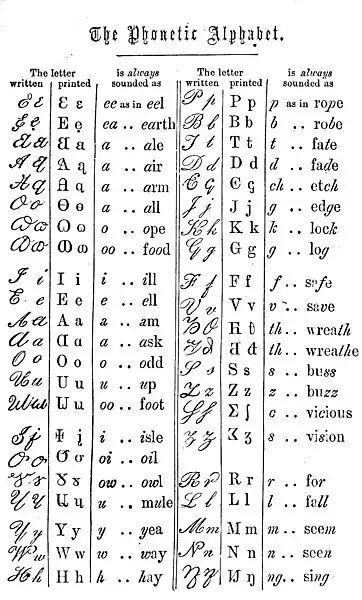 The Phonetic Alphabet.
The letter is always The letter is always
written printed sounded as written printed sounded as
Ɛ ɛ Ɛ ɛ ee as in eel P p P p p as in rope
E ę E ę ea .. earth B b B b b .. robe
a .. ale T t T t t .. fate
Ą ą Ą ą a .. air D d D d d .. fade
a .. arm ch .. etch
Ɵ ɵ a .. all J j J j g .. edge
o .. ope K k K k k .. lock
oo .. food G g G g g .. log
I i I i i .. ill F f F f f .. safe
E e E e e .. ell V v V v v .. save
A a A a a .. am th .. wreath
a .. ask th .. wreathe
O o O o o .. odd S s S s s .. buss
U u U u u .. up Z z Z z z .. buzz
oo .. foot Σ ʃ c .. vicious
i .. isle s .. vision
oi .. oil
ow .. owl R r R r r .. for
u .. mule L l L l l .. fall
Y y Y y y .. yea M m M m m .. seem
W w W w w .. way N n N n n .. seen
H h H h h .. hay Ŋ ŋ ng .. sing